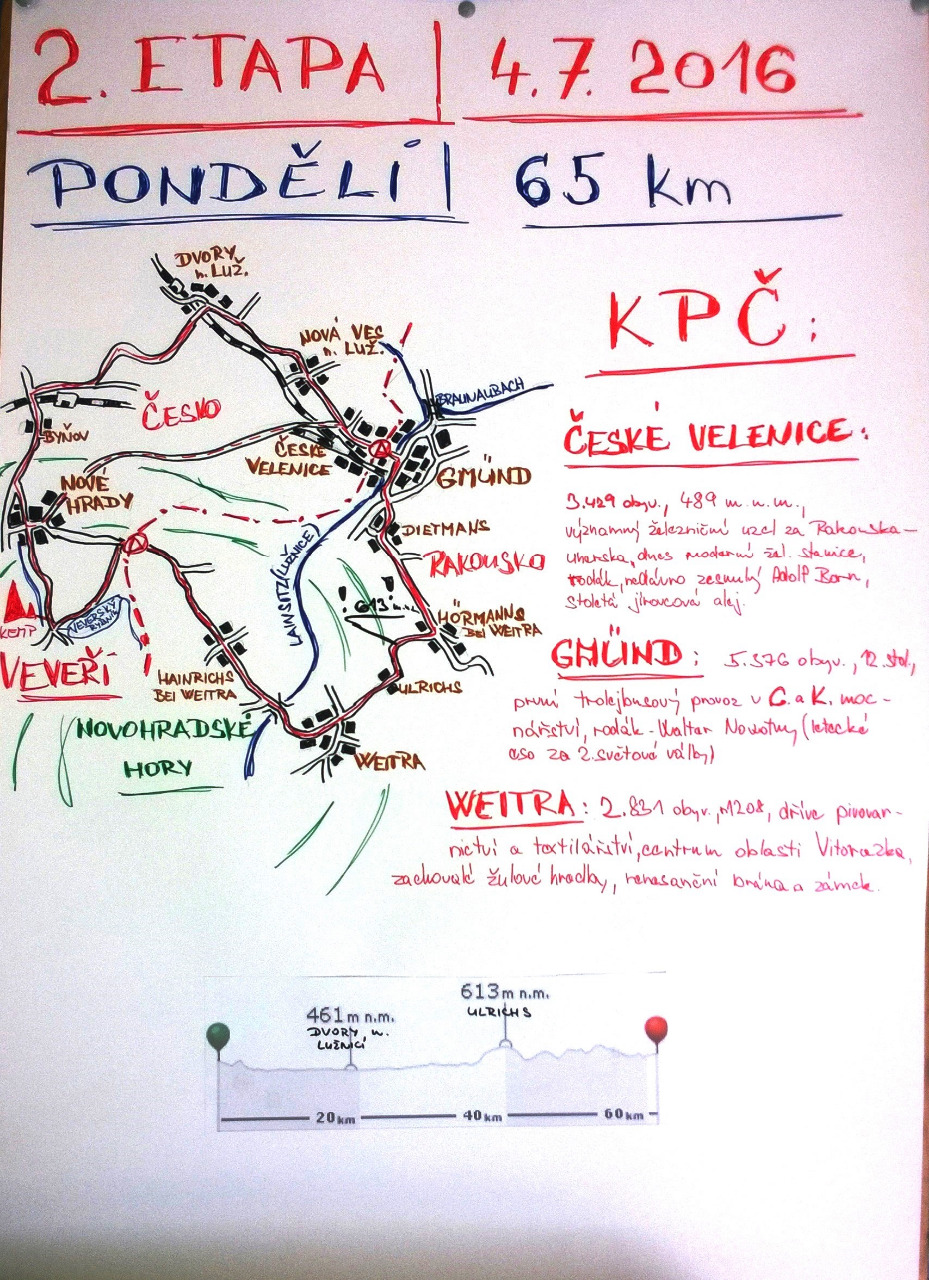 2. ETAPA | 4.7. 2016
PONDĚLÍ | 65 km
DVORY
n. LUŽ.
NOVÁ VES
n. LUŽ.
BRAUNAUBACH
ČESKO
BYŇOV
ČESKÉ
VELENICE
GMÜND
NOVÉ
HRADY
DIETMANS
RAKOUSKO
LAINSITZ (LUŽNICE)
613 m n.m.
HÖRMANNS
BEI WEITRA
KEMP
VEVERSKÝ
RYBNÍK
VEVEŘÍ
HAINRICHS
BEI WEITRA
ULRICHS
NOVOHRADSKÉ
HORY
WEITRA
KPČ:
ČESKÉ VELENICE:
3.429 obyv., 489 m.n.m.,
významný železniční uzel za Rakouska-
Uherska, dnes moderní žel. stanice,
rodák, nedávno zesnulý Adolf Born,
stoletá jírovcová alej.
GMÜND: 5.376 obyv., 12. stol.,
první trolejbusový provoz v C. a K. moc-
nářství, rodák - Walter Nowotny (letecké
eso za 2. světové války)
WEITRA: 2.831 obyv., 1208, dříve pivovar-
nictví a textilářství, centrum oblasti Vitorazka,
zachovalé žulové hradby, renesanční brána a zámek.
613 m n.m.
ULRICHS
461 m n.m.
DVORY n.
LUŽNICÍ
20 km 40 km 60 km